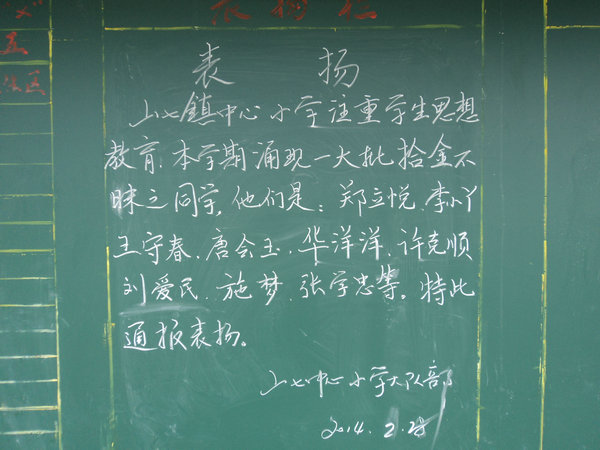 表扬栏
五
表扬
上七鎮中心小学注重学生思想
教育,本学期涌现一大批拾金不
昧之同学,他们是:郑立悦、李小丫
王守春、唐会玉、华洋洋、许克顺
刘爱民、施梦、张字忠等。特此
通报表扬。
上七中心小学大队部
2014.2.25